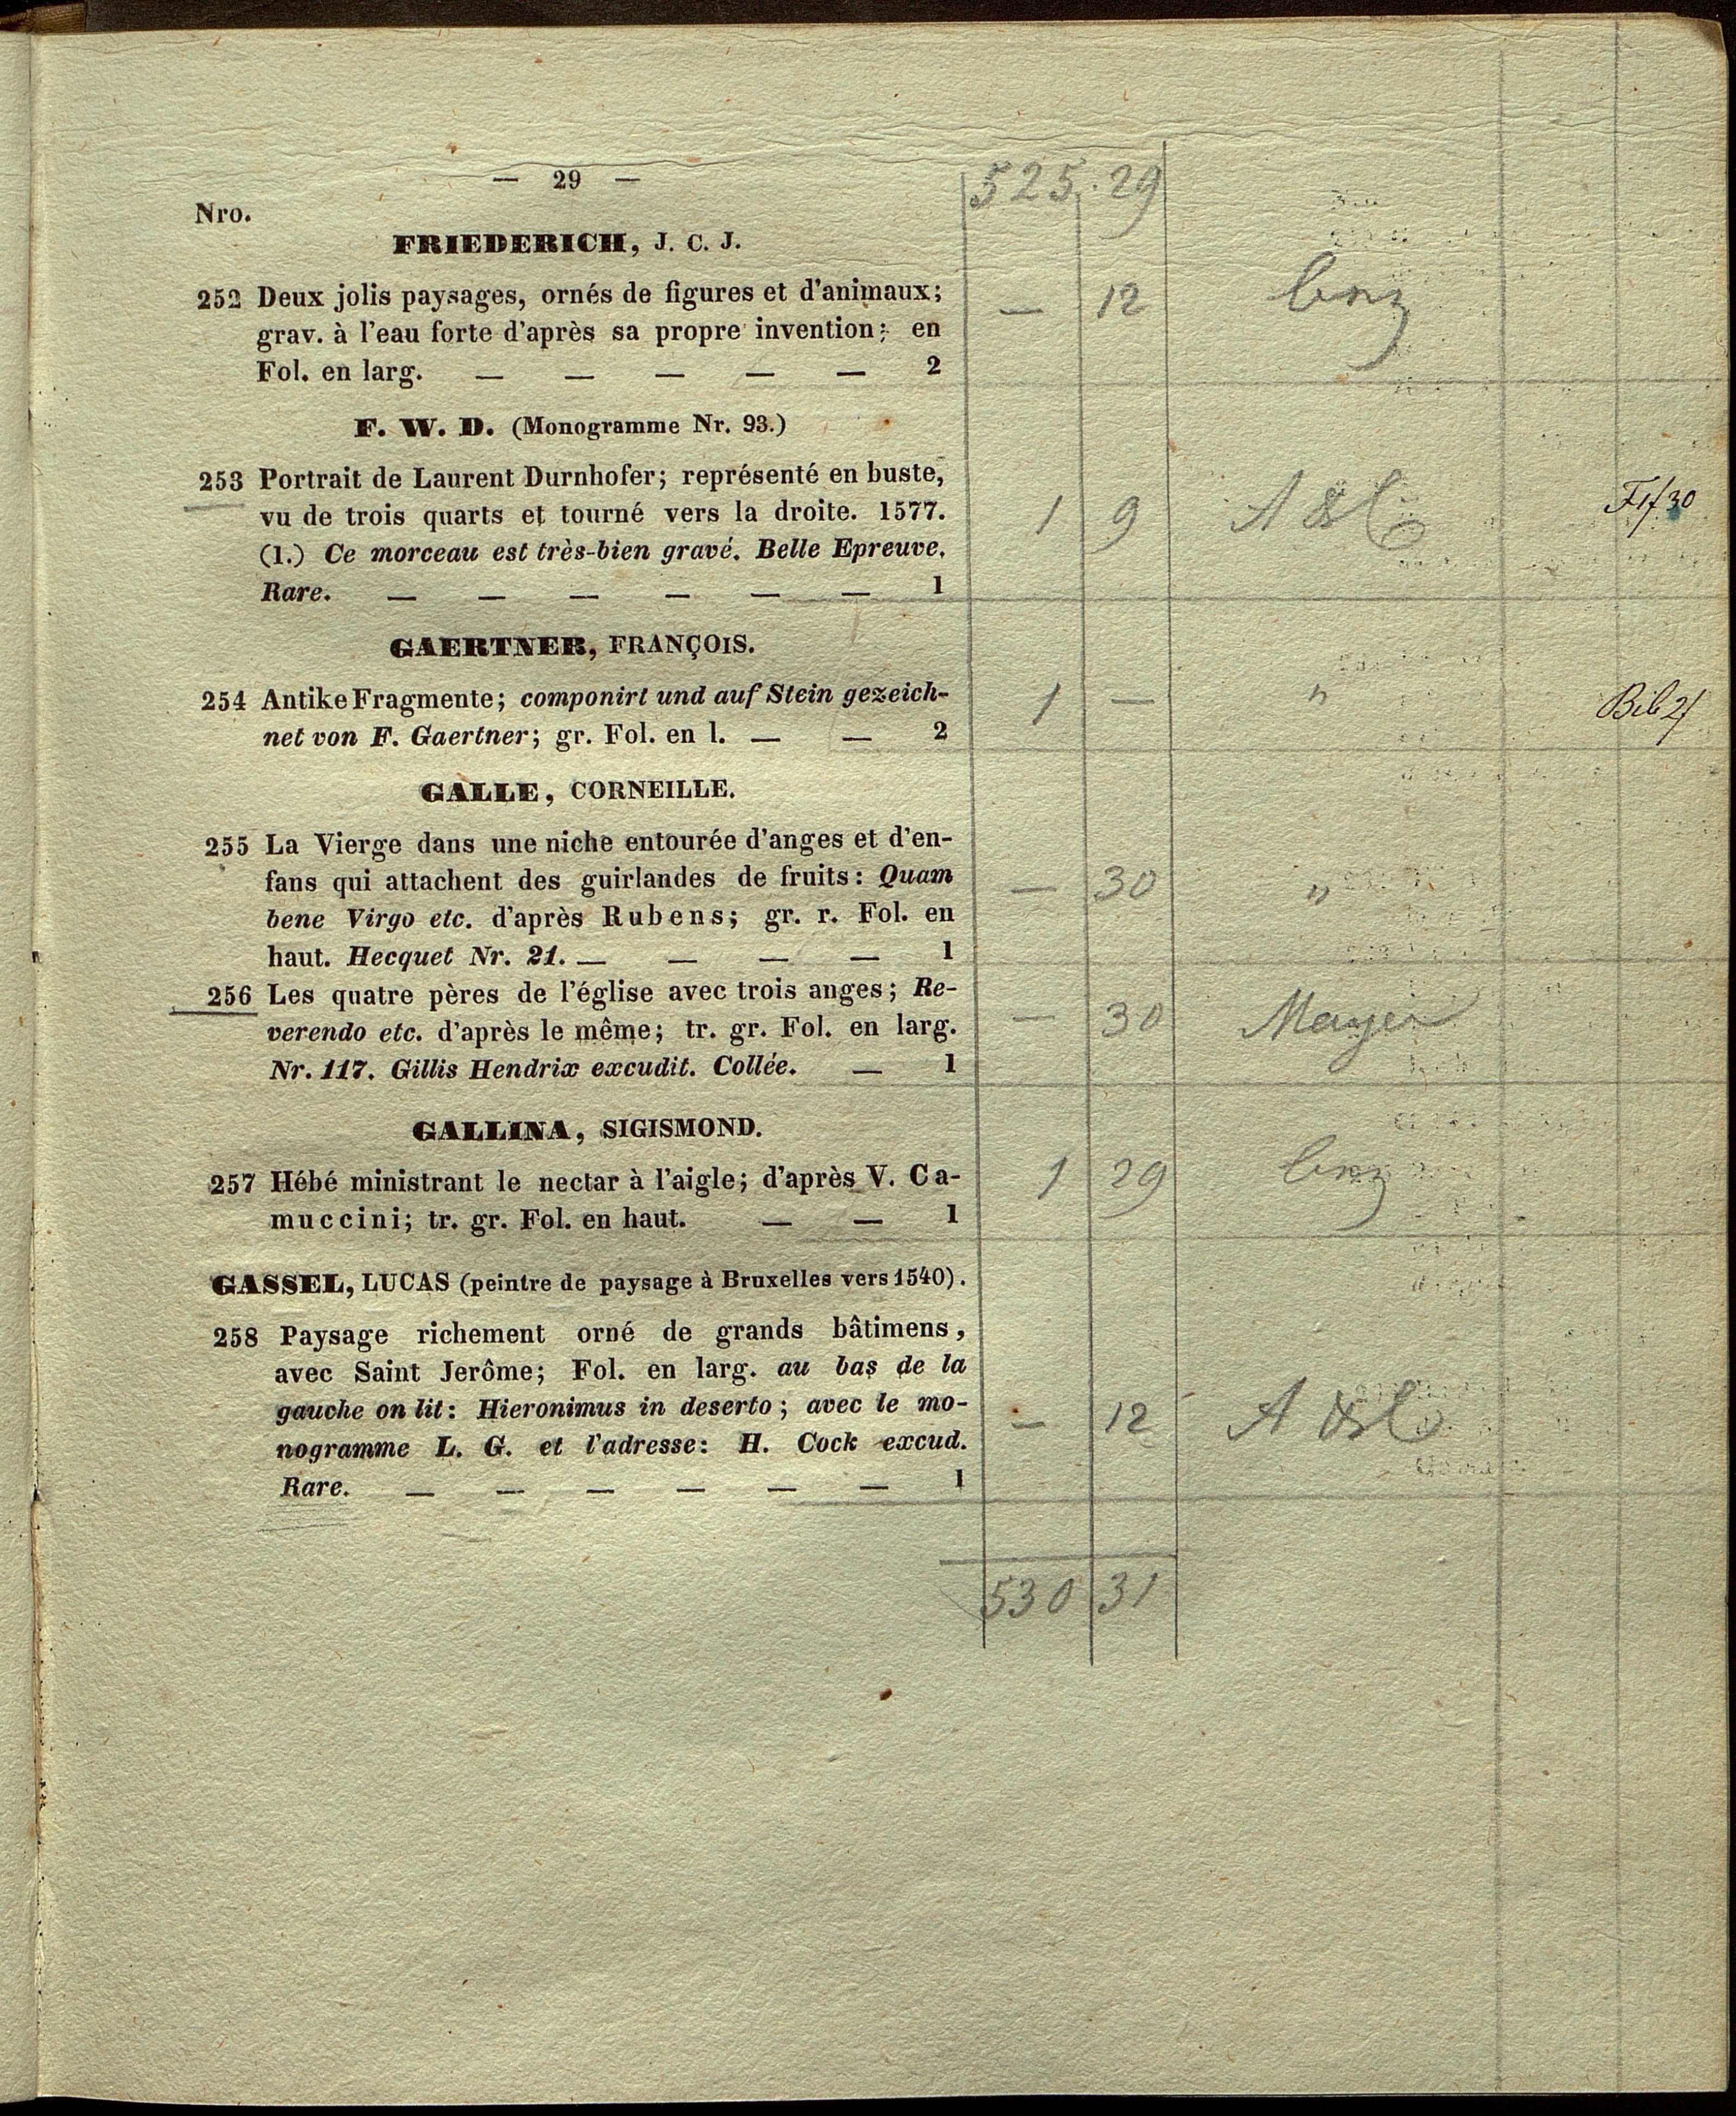 — 29 —
525 . 29
Nro.
FRIEDERICH, J. C. J.
252 Deux jolis paysages, ornés de figures et d'animaux;
grav. à l'eau forte d'après sa propre invention; en
Fol. en larg. — — — — — 2
— 12
F. W. D. (Monogramme Nr. 93.)
253 Portrait de Laurent Durnhofer; représenté en buste,
vu de trois quarts et tourné vers la droite. 1577.
(1.) Ce morceau est très-bien gravé. Belle Epreuve.
Rare. — — — — — — 1
1 9
GAERTNER, FRANÇOIS.
254 Antike Fragmente; componirt und auf Stein gezeich-
net von F. Gaertner; gr. Fol. en l. — — 2
1 — "
GALLE, CORNEILLE.
255 La Vierge dans une niche entourée d'anges et d'en-
fans qui attachent des guirlandes de fruits: Quam
bene Virgo etc. d'après Rubens; gr. r. Fol. en
haut. Hecquet Nr. 21. — — — — 1
— 30 "
256 Les quatre pères de l'église avec trois anges; Re-
verendo etc. d'après le même; tr. gr. Fol. en larg.
Nr. 117. Gillis Hendrix excudit. Collée. — 1
— 30
GALLINA, SIGISMOND.
257 Hébé ministrant le nectar à l'aigle; d'après V. Ca-
muccini; tr. gr. Fol. en haut. — — 1
1 29
GASSEL, LUCAS (peintre de paysage à Bruxelles vers 1540).
258 Paysage richement orné de grands bâtimens,
avec Saint Jerôme; Fol. en larg. au bas de la
gauche on lit: Hieronimus in deserto; avec le mo-
nogramme L. G. et l'adresse: H. Cock excud.
Rare. — — — — — — 1
— 12
530 31